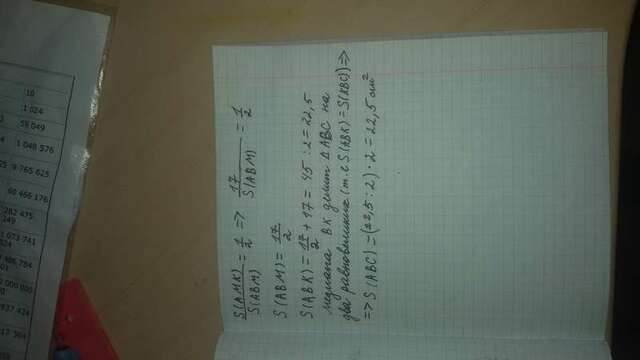 S(AMK)/S(ABM) = 1/2 => 17/S(ABM) = 1/2
S(ABM) = 17/2
S(ABK) = 17/2 + 17 = 45 : 2 = 22,5
медиана BK делит Δ ABC на
два равновеликие (т.е S(ABK) = S(KBC)) =>
=> S(ABC) = (22,5 : 2) · 2 = 22,5 см²
10
1 024
59 049
1 048 576
9 765 625
60 466 176
282 475
249
1 073 741
824